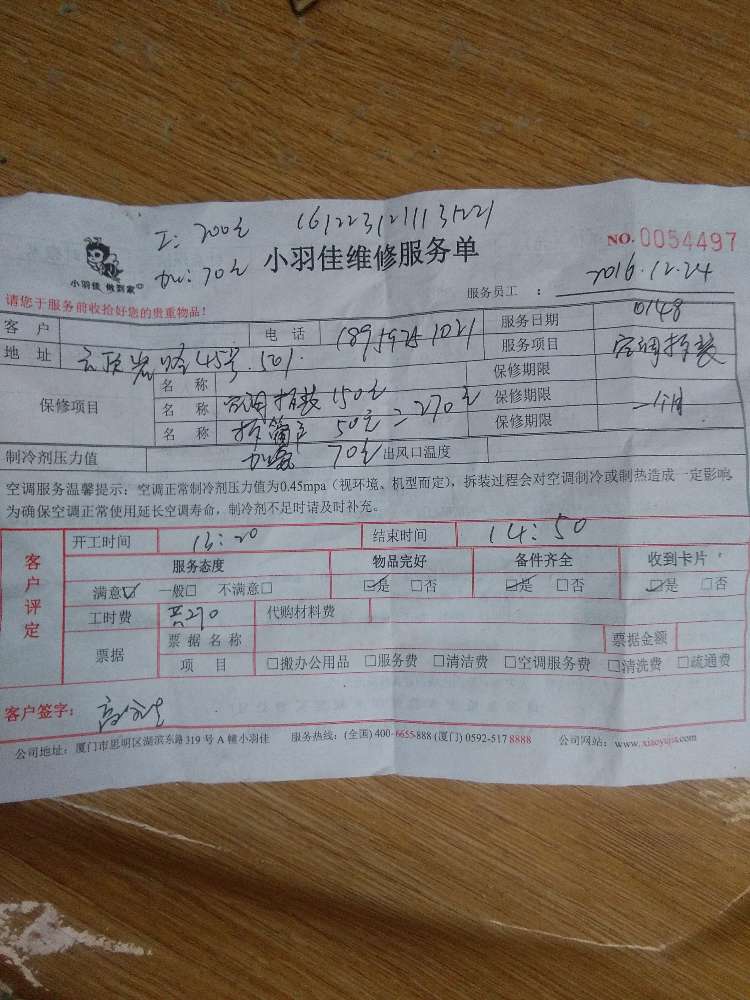 工: 200元 161223121113521
小羽佳 做到家
加: 70元 小羽佳维修服务单 NO. 0054497
请您于服务前收拾好您的贵重物品!
服务员工 : 2016.12.24
客 户 电 话 18959251021 服务日期 0148
地 址 云顶岩路45号.501. 服务项目 空调拆装
保修项目 名 称 保修期限
名 称 空调拆装 150元 保修期限 一个月
名 称 50元 = 270元 保修期限
制冷剂压力值 加氨 70元 出风口温度
空调服务温馨提示: 空调正常制冷剂压力值为0.45mpa (视环境、机型而定), 拆装过程会对空调制冷或制热造成一定影响,
为确保空调正常使用延长空调寿命, 制冷剂不足时请及时补充。
客户评定
开工时间 13:20 结束时间 14:50
服务态度 物品完好 备件齐全 收到卡片
满意☑ 一般□ 不满意□ ☑是 □否 ☑是 □否 ☑是 □否
工时费 共270 代购材料费
票据 票 据 名 称 票据金额
项 目 □搬办公用品 □服务费 □清洁费 □空调服务费 □清洗费 □疏通费
客户签字:
公司地址: 厦门市思明区湖滨东路319号A幢小羽佳 服务热线: (全国) 400-6655-888 (厦门) 0592-517 8888 公司网站: www.xiaoyujia.com